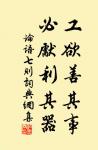 工欲善其事
必獻利其器
論語七則詞典網集